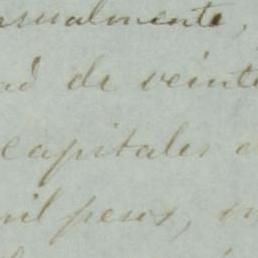 nsualmente,
ad de veinte
capitales
mil pesos,